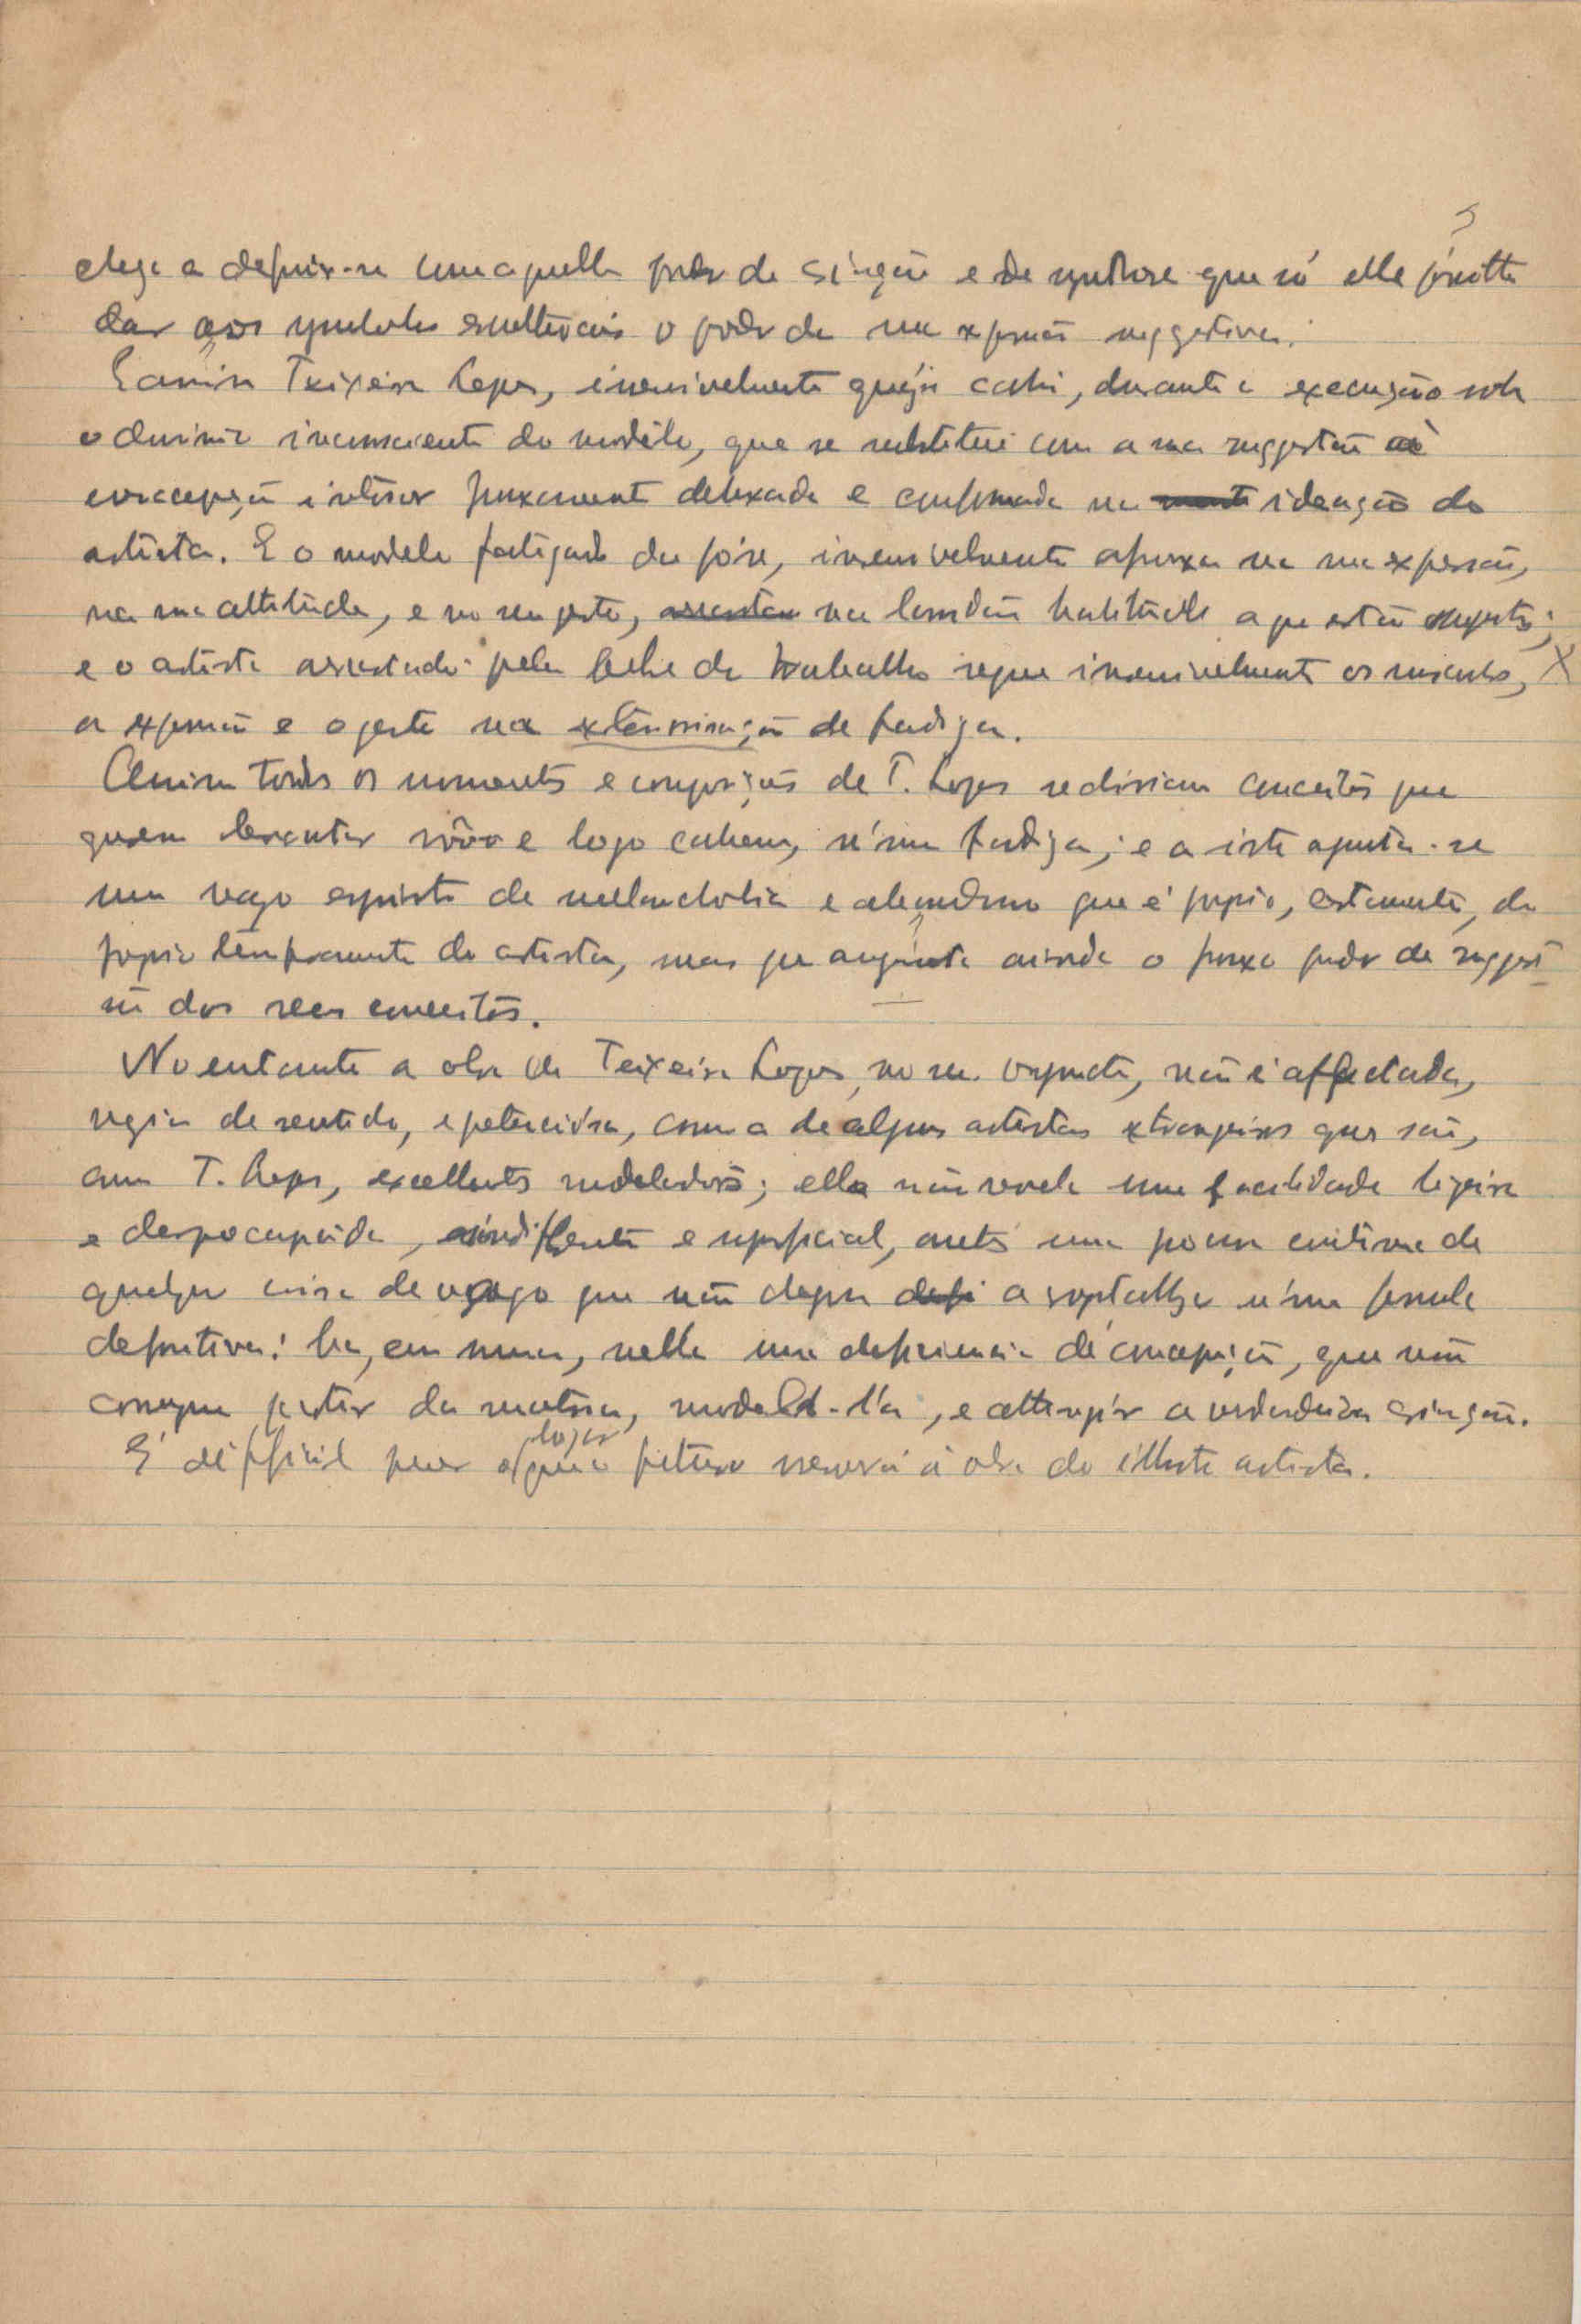 5
chega a definir-se com aquelle poder de criação e de synthese que só elle permitte
dar aos symbolos esculturais o poder de uma expressão suggestiva.
E assim Teixeira Lopes, insensivelmente cahi, durante a execução sob
o dominio inconsciente do modêlo, que se substitue com a sua suggestão á
concepção interior frouxamente debuxada e conformada na ideação do
artista. E o modelo fatigado da póse, insensivelmente afrouxa na sua expressão,
na sua attitude, e no seu gesto, na lassidão habitual a que estão sujeitos;
e o artista arrastado pela febre do trabalho segue insensivelmente os musculos, X
a expressão e o gesto na exteriorisação de fadiga.
Assim todos os monumentos e composições de T. Lopes se diriam conceitos que
querem levantar vôo e logo cahem, n'uma fadiga; e a isto ajunta-se
um vago espirito de melancholia e abandono que é proprio, certamente, do
proprio temperamento do artista, mas que augmenta ainda o frouxo poder de sugges-
tão dos seus conceitos.
No entanto a obra de Teixeira Lopes, no seu conjuncto, não é affectada,
vazia de sentido, e pretenciósa, como a de alguns artistas extrangeiros que são,
como T. Lopes, excellentes modeladores; ella não revela uma facilidade ligeira
e despreocupada, indifferente e superficial, antes uma procura continua de
qualquer coisa de vago que não chegou a crystallizar n'uma formula
definitiva: ha, em summa, nella uma deficiencia de concepção, que não
consegue partir da materia, modelá-la, e attingir a verdadeira criação.
É difficil prever o logar que o futuro reservará á obra do illustre artista.